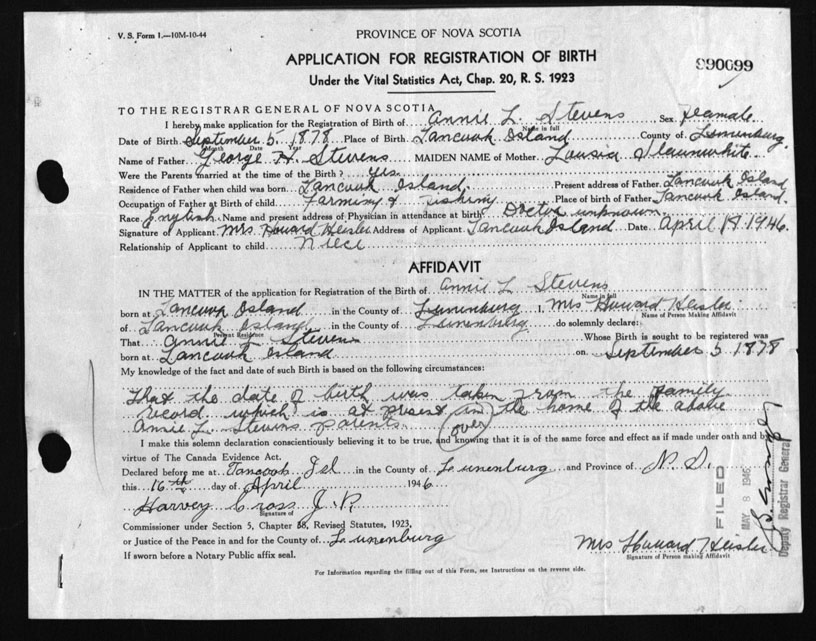 V. S. Form 1.—10M-10-44
PROVINCE OF NOVA SCOTIA
APPLICATION FOR REGISTRATION OF BIRTH
Under the Vital Statistics Act, Chap. 20, R. S. 1923
990699
TO THE REGISTRAR GENERAL OF NOVA SCOTIA
I hereby make application for the Registration of Birth of Annie L. Stevens Sex Feamale
Name in full
Date of Birth September 5 1878 Place of Birth Tancook Island County of Lunenburg.
Month Date Year
Name of Father George H. Stevens MAIDEN NAME of Mother Lousia Slaunwhite
Were the Parents married at the time of the Birth? yes
Residence of Father when child was born Tancook Island Present address of Father Tancook Island
Occupation of Father at Birth of child Farming & Fishing Place of birth of Father Tancook Island.
Race English Name and present address of Physician in attendance at birth Doctor unknown
Signature of Applicant Mrs Howard Heisler Address of Applicant Tancook Island Date April 1946.
Relationship of Applicant to child Niece
AFFIDAVIT
IN THE MATTER of the application for Registration of the Birth of Annie L Stevens
Name in full
born at Tancook Island in the County of Lunenburg I, Mrs Howard Heisler
Name of Person Making Affidavit
of Tancook Island in the County of Lunenburg do solemnly declare:
Present Residence
That Annie L Stevens Whose Birth is sought to be registered was
born at Tancook Island on September 5 1878
My knowledge of the fact and date of such Birth is based on the following circumstances:
that the date of birth was taken from the family
record which is at present (in) the home of the above
Annie L. Stevens parents. (over)
I make this solemn declaration conscientiously believing it to be true, and knowing that it is of the same force and effect as if made under oath and by
virtue of The Canada Evidence Act.
Declared before me at Tancook Isl in the County of Lunenburg and Province of N. S.
this 16th day of April 1946
Harvey Cross J. P.
Signature of
Commissioner under Section 5, Chapter 38, Revised Statutes, 1923,
or Justice of the Peace in and for the County of Lunenburg
If sworn before a Notary Public affix seal.
Mrs Howard Heisler
Signature of Person making Affidavit
For Information regarding the filling out of this Form, see Instructions on the reverse side.
FILED
MAY 8 1946
Deputy Registrar General